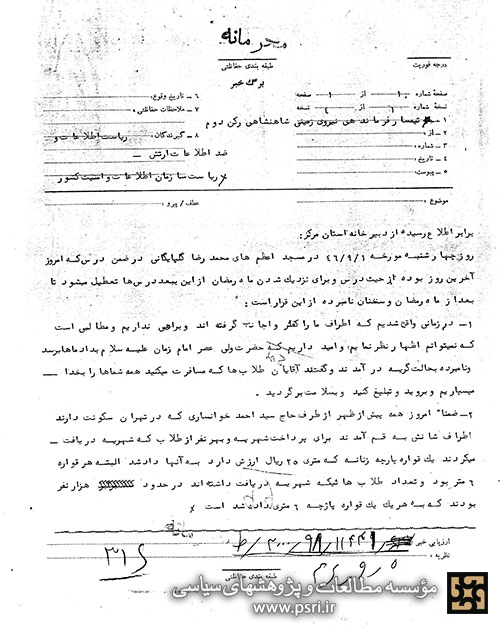 محرمانه
درجه فوریت
طبقه بندی حفاظتی
برگ خبر
صفحه شماره ۱ از ۱ صفحه
نسخه شماره ۱ از ۴ نسخه
۶ – تاریخ وقوع:
۷ – ملاحظات حفاظتی:
۱ – تیمسار فرماندهی نیروی زمینی شاهنشاهی رکن دوم
۸ – گیرندگان: ریاست اطلاعات و
۲ – از:
ضد اطلاعات ارتش –
۳ – شماره:
ریاست سازمان اطلاعات و امنیت کشور
۴ – تاریخ:
۵ – پیوست:
موضوع:
عطف / پیرو:
برابر اطلاع رسیده از دبیرخانه استان مرکز:
روز چهارشنبه مورخه ۴۶/۹/۱ در مسجد اعظم های محمد رضا گلپایگانی در ضمن درس که امروز
آخرین روز بوده از حیث درس و برای نزدیک شدن ماه رمضان از این ببعد درس ها تعطیل میشود تا
بعد از ماه رمضان و سخنان نامبرده از این قرار است:
۱– در زمانی واقع شدیم که اطراف ما را کفر و اجانب گرفته اند و براهی نداریم و مطالبی است
که نمیتوانم اظهار نظر نمایم و امید داریم که حضرت ولی عصر امام زمان علیه سلام بداد ما برسد
و نامبرده بحالت گریه در آمدند و گفتند آقایان طلاب ها که مسافرت میکنید همه شماها را بخدا –
میسپاریم و بروید و تبلیغ کنید و بسلامت برگردید .
۲– ضمنا" امروز همه پیش از ظهر از طرف حاج سید احمد خوانساری که در تهران سکونت دارند
اطرافشانش به قم آمدند برای پرداخت شهریه و بهر نفر از طلاب که شهریه دریافت –
میکردند یک قواره پارچه زنانه که متری ۲۵ ریال ارزش دارد به آنها داده شد البته هر قواره
۶ متر بود و تعداد طلاب هائیکه شهریه دریافت داشته اند در حدود هزار نفر
بودند که به هر یک یک قواره پارچه ۶ متری داده شد است
ارزیابی خبر
نظریه:
طبقه بندی حفاظتی
۳۱۶
مؤسسه مطالعات و پژوهشهای سیاسی
www.psri.ir